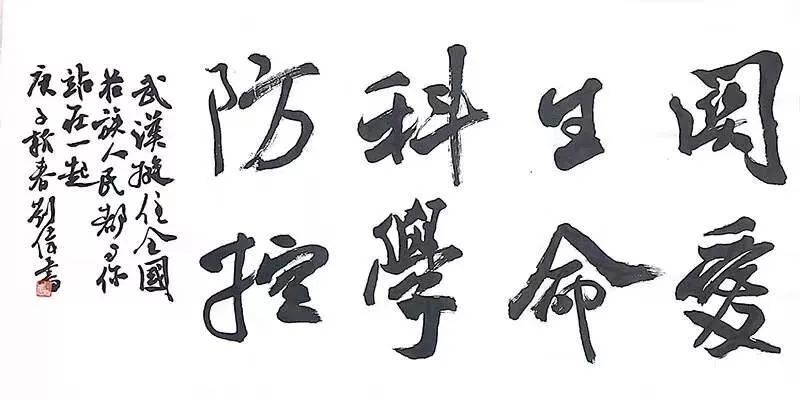 関愛
生命
科學
防控
武漢挺住全國
各族人民都与你
站在一起
庚子新春劉偉書